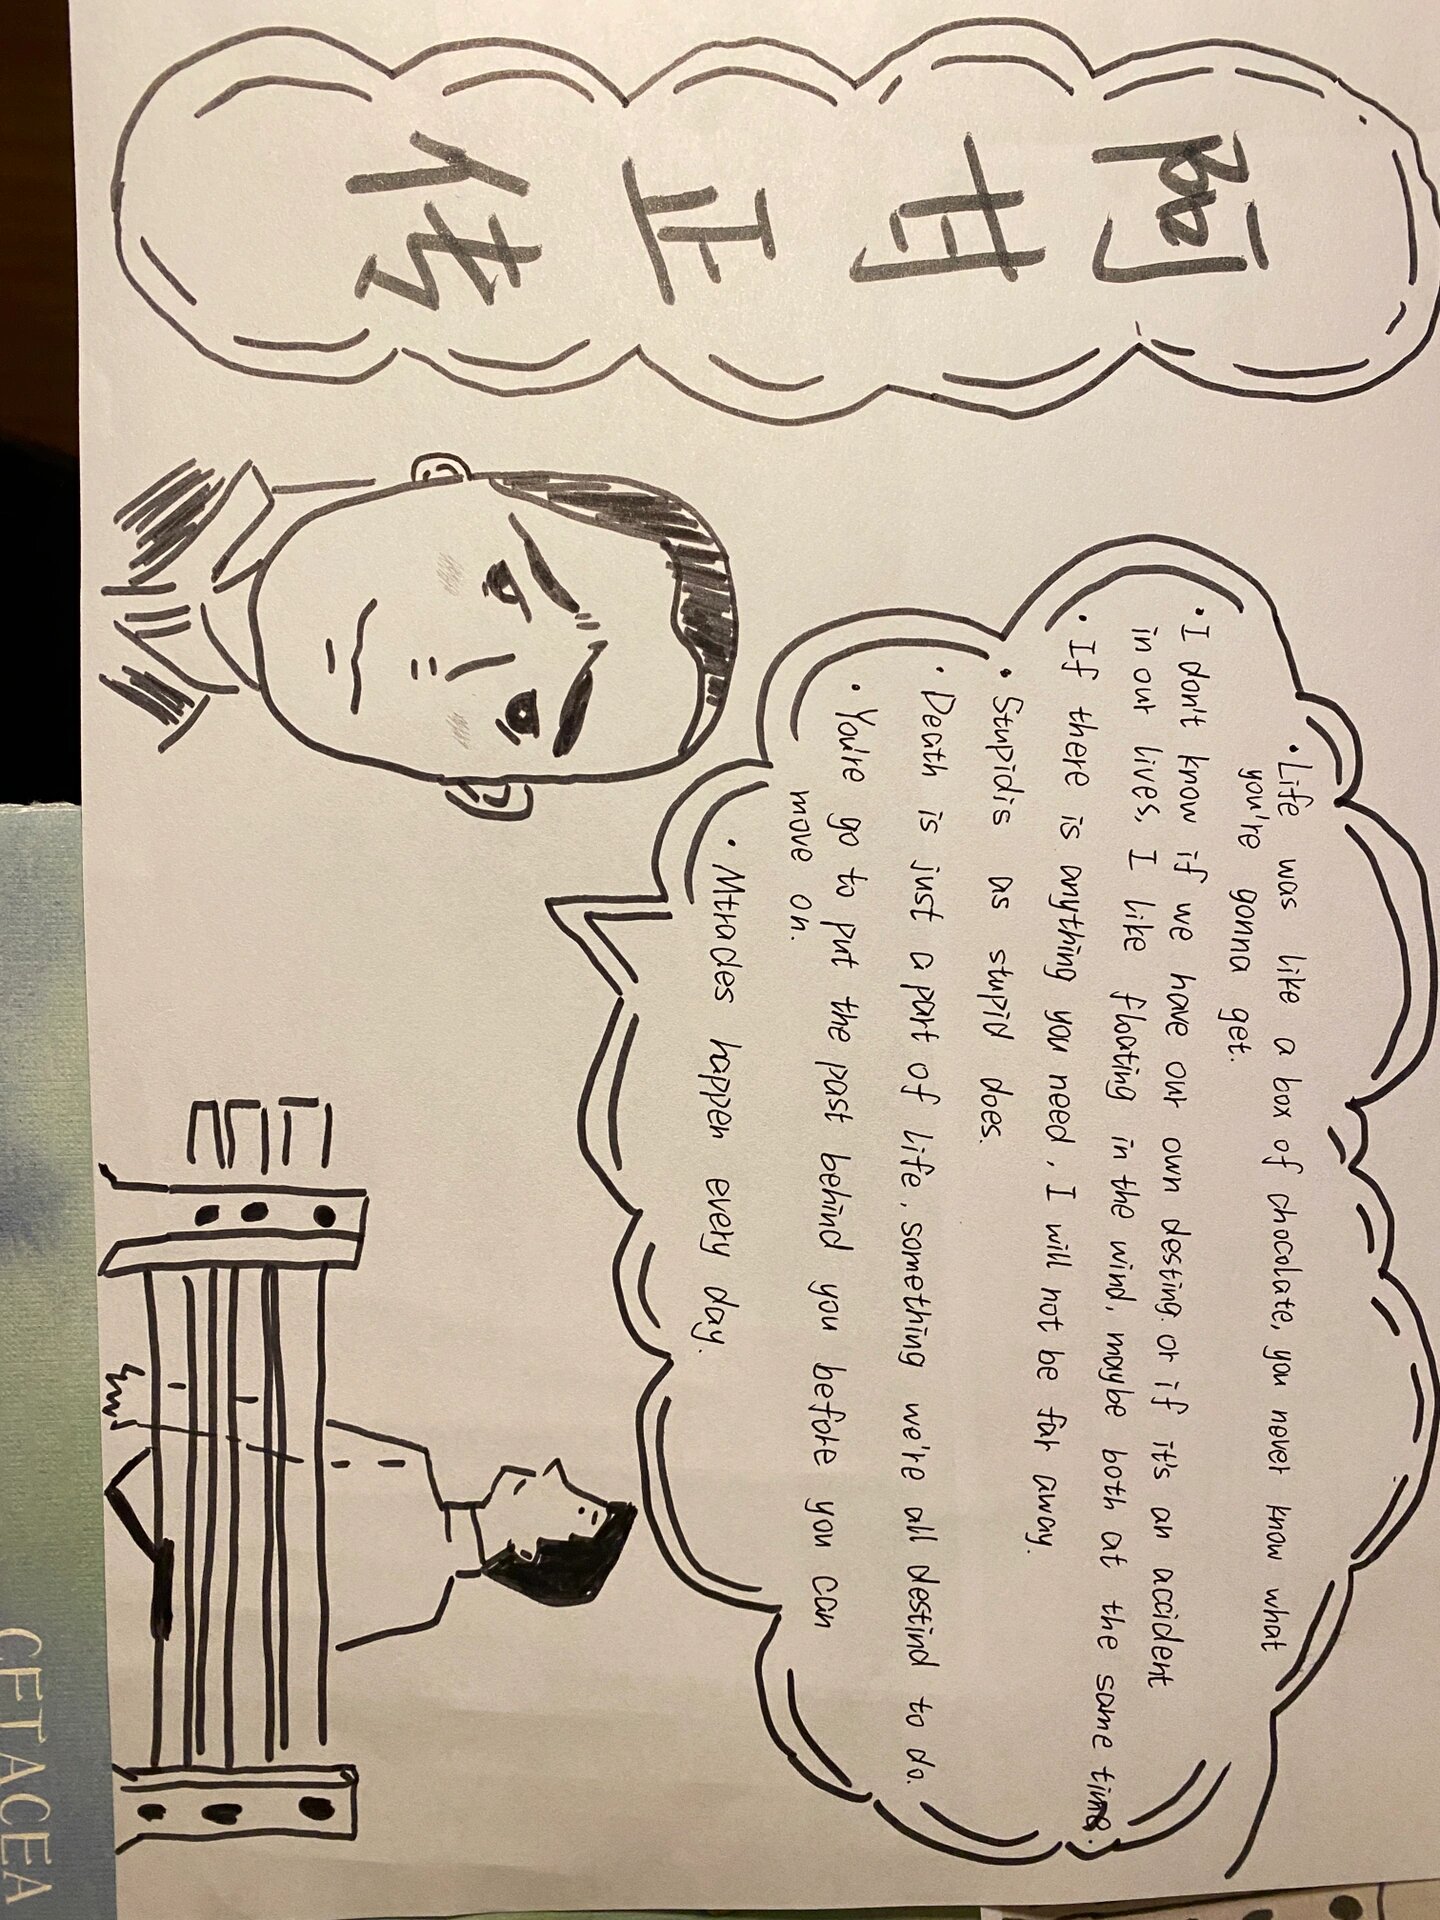 阿甘正传
• Life was like a box of chocolate, you never know what
you're gonna get.
• I don't know if we have our own desting. or if it's an accident
in out lives, I like floating in the wind, maybe both at the same time.
• If there is anything you need, I will not be far away.
• Stupidis as stupid does.
• Death is just a part of life, something we're all destind to do.
• You're go to put the past behind you before you can
move on.
• Mtrades happen every day.
CETACEA